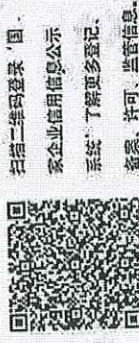 扫描二维码登录‘国
家企业信用信息公示
系统’了解更多登记、
备案、许可、监管信息。